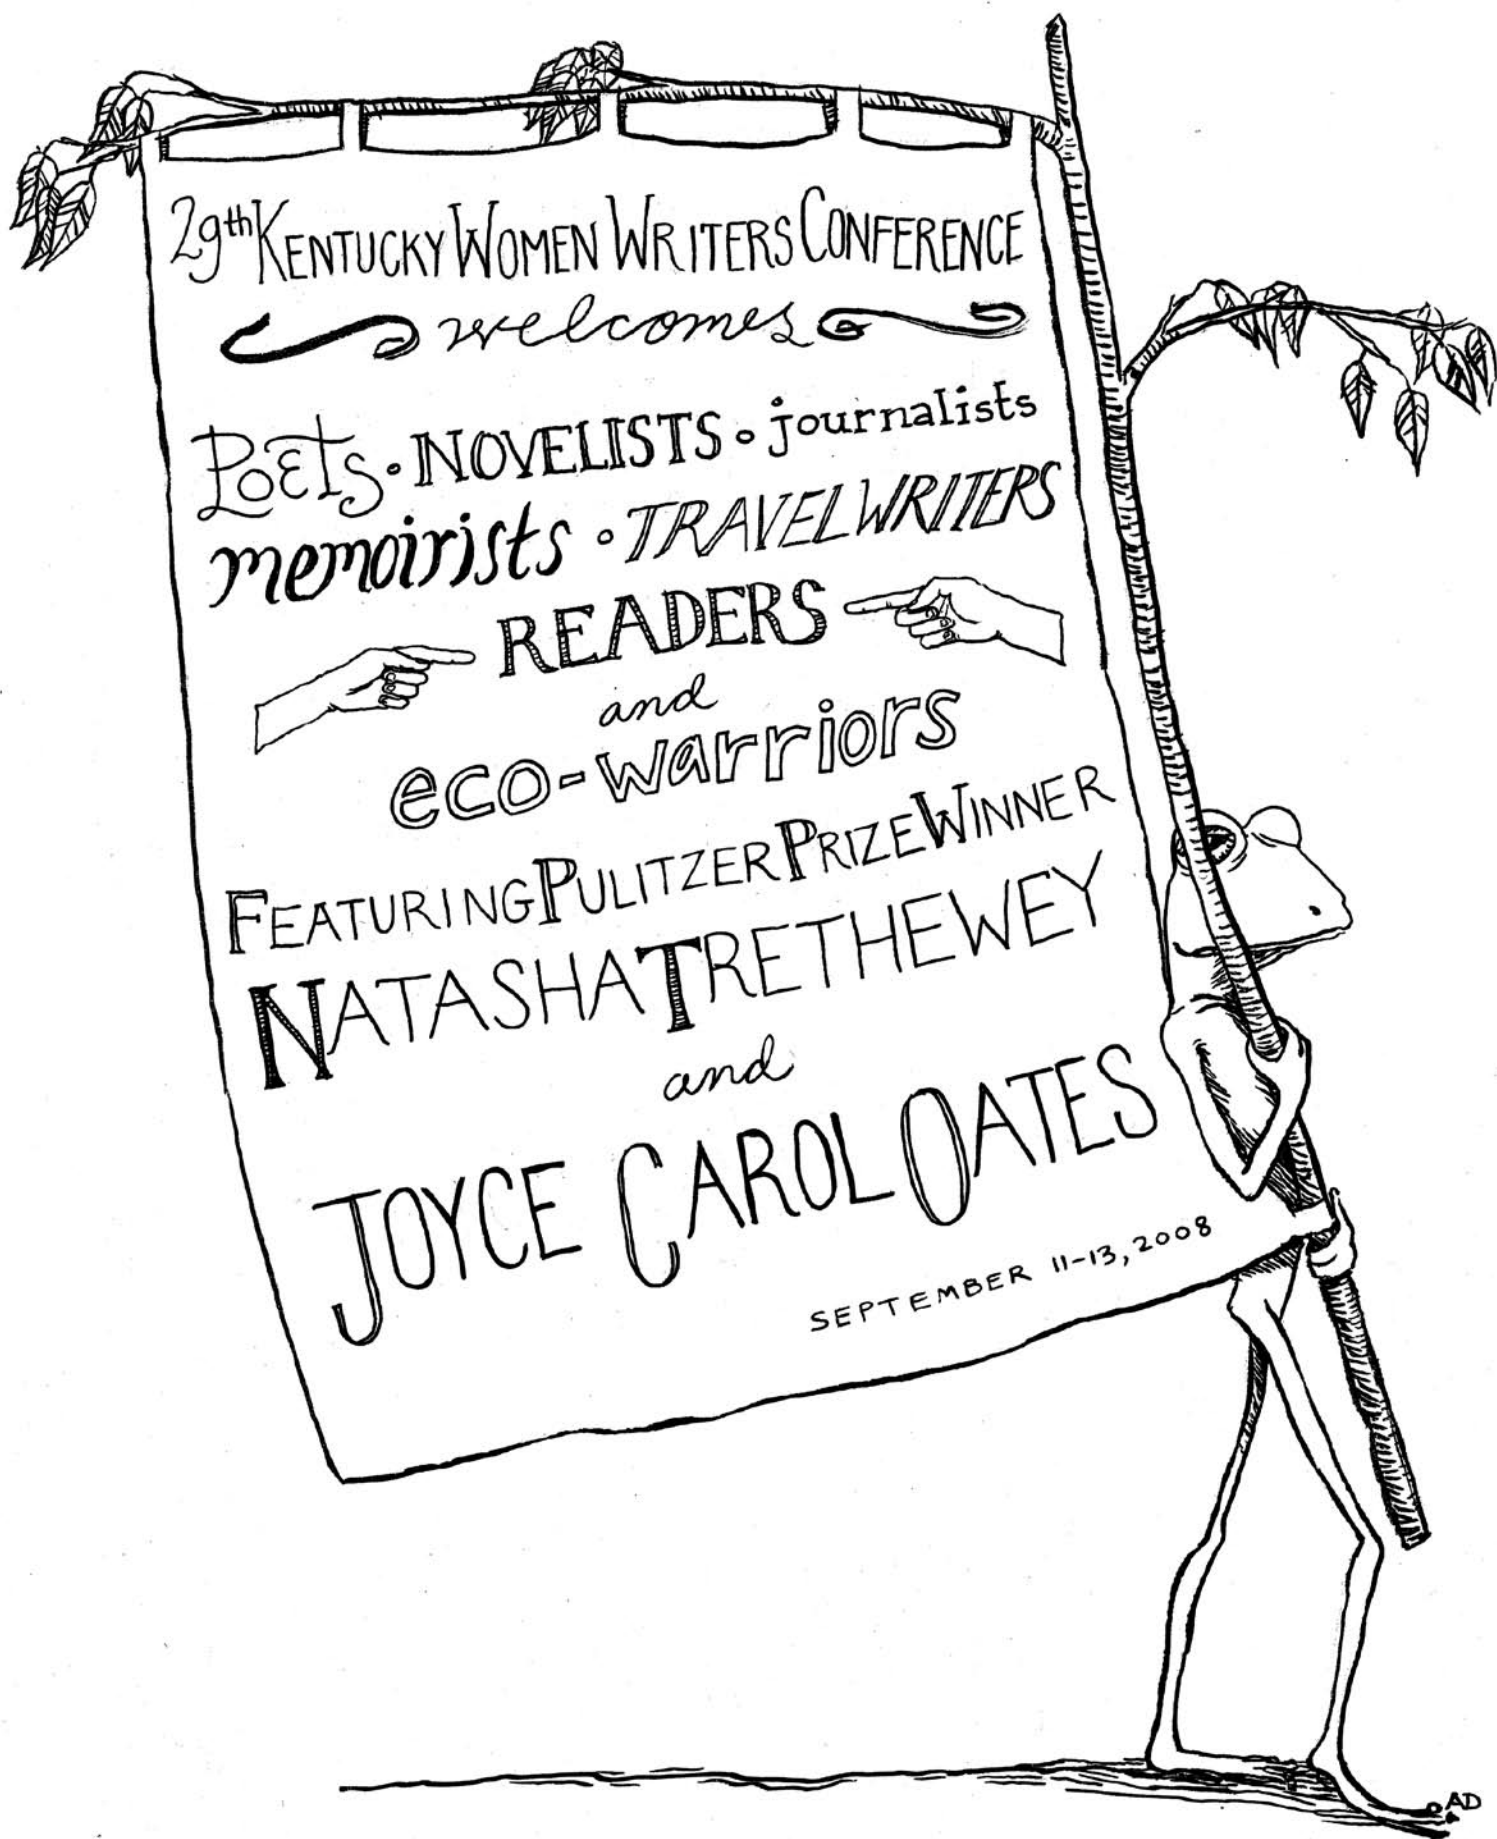 29th KENTUCKY WOMEN WRITERS CONFERENCE
welcomes
POETS • NOVELISTS • journalists
memoirists • TRAVEL WRITERS
READERS
and
eco-warriors
FEATURING PULITZER PRIZE WINNER
NATASHA TRETHEWEY
and
JOYCE CAROL OATES
SEPTEMBER 11-13, 2008
AD